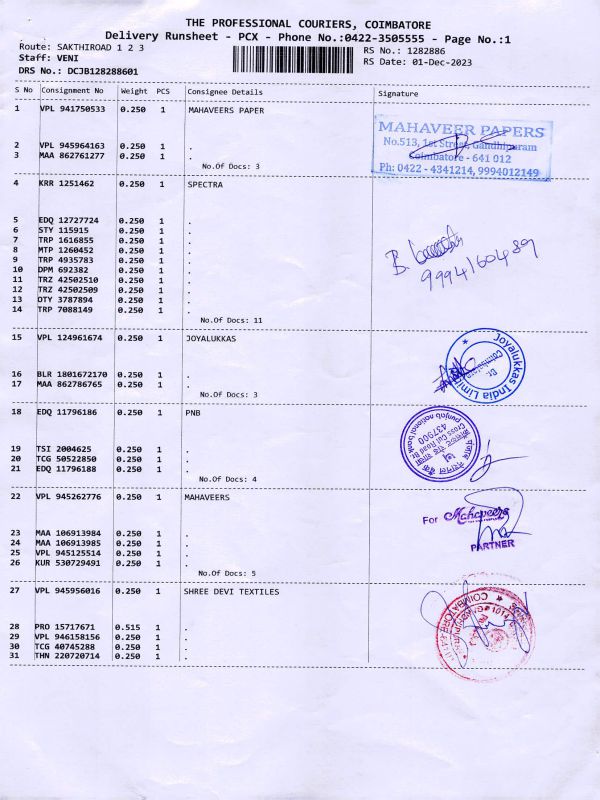 THE PROFESSIONAL COURIERS, COIMBATORE
Delivery Runsheet - PCX - Phone No.:0422-3505555 - Page No.:1
Route: SAKTHIROAD 1 2 3
RS No.: 1282886
Staff: VENI
RS Date: 01-Dec-2023
DRS No.: DCJB128288601
S No Consignment No Weight PCS Consignee Details Signature
1 VPL 941750533 0.250 1 MAHAVEERS PAPER
MAHAVEER PAPERS
No.513, 1st Street, Gandhipuram
Coimbatore - 641 012
Ph: 0422 - 4341214, 9994012149
2 VPL 945964163 0.250 1 .
3 MAA 862761277 0.250 1 .
No.Of Docs: 3
4 KRR 1251462 0.250 1 SPECTRA
5 EDQ 12727724 0.250 1 .
6 STY 115915 0.250 1 .
7 TRP 1616855 0.250 1 .
8 MTP 1260452 0.250 1 .
9 TRP 4935783 0.250 1 .
10 DPM 692382 0.250 1 .
11 TRZ 42502510 0.250 1 .
12 TRZ 42502509 0.250 1 .
13 OTY 3787894 0.250 1 .
14 TRP 7088149 0.250 1 .
No.Of Docs: 11
B.
9994160489
15 VPL 124961674 0.250 1 JOYALUKKAS
Joyalukkas India Limi
Coimbatore
16 BLR 1801672170 0.250 1 .
17 MAA 862786765 0.250 1 .
No.Of Docs: 3
18 EDQ 11796186 0.250 1 PNB
punjab national bank
Cross Cut Road Br.
437900
19 TSI 2004625 0.250 1 .
20 TCG 50522850 0.250 1 .
21 EDQ 11796188 0.250 1 .
No.Of Docs: 4
22 VPL 945262776 0.250 1 MAHAVEERS
For Mahaveers
PARTNER
23 MAA 106913984 0.250 1 .
24 MAA 106913985 0.250 1 .
25 VPL 945125514 0.250 1 .
26 KUR 530729491 0.250 1 .
No.Of Docs: 5
27 VPL 945956016 0.250 1 SHREE DEVI TEXTILES
COIMBATORE
28 PRO 15717671 0.515 1 .
29 VPL 946158156 0.250 1 .
30 TCG 40745288 0.250 1 .
31 THN 220720714 0.250 1 .